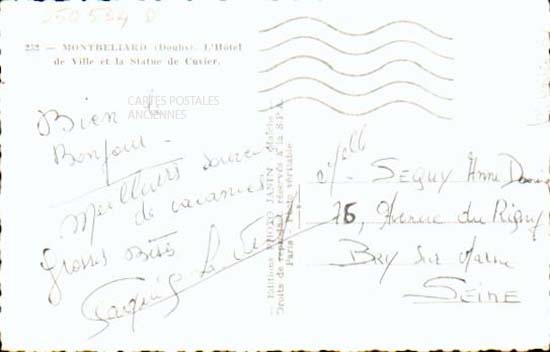 250594 D
252 — MONTBELIARD (Doubs). L'Hôtel
de Ville et la Statue de Cuvier.
CARTES POSTALES
ANCIENNES
Bien le
Bonjour -
Meilleurs
de vacances
Grosses Bises
Editions PHOTO JANIN
Droits de reproduct. réservés à la S.P.A.
Paris véritable
M^elle SEGUY Anne
76, Avenue du Rigny
BRY sur Marne
SEINE